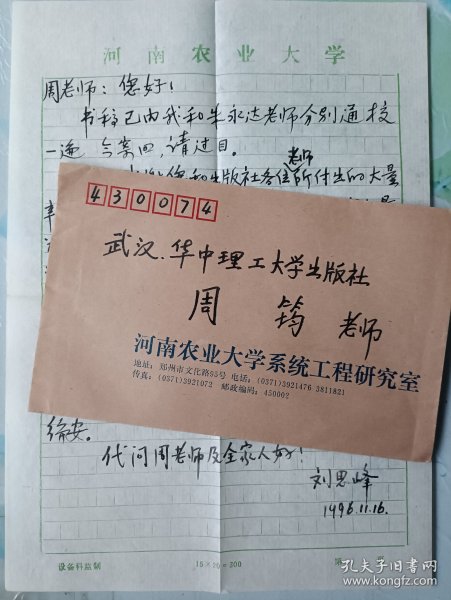 河南农业大学
周老师：您好！
书稿已由我和朱永达老师分别通校
一遍，今寄回，请过目。
老师
您和出版社各位所付出的大量
430074
武汉.华中理工大学出版社
周筠老师
河南农业大学系统工程研究室
地址：郑州市文化路95号 电话：(0371)3921476 3811821
传真：(0371)3921072 邮政编码：450002
安。
代问周老师及全家人好！
刘思峰
1996.11.16.
设备科监制
15×20=300
第
孔夫子旧书网
kongfz.com